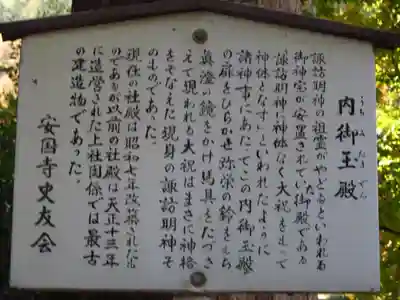 内御玉殿
うちみたまでん
諏訪明神の祖霊がやどるといわれる
御神宝が安置されていた御殿である
諏訪明神に神体なく大祝をもって
神体となす」といわれたように
諸神事にあたってこの内御玉殿
の扉をひらかせ弥栄の鈴をもち
真澄の鏡をかけ馬具をたづさ
えて現われる大祝はまさに神格
をそなえた現身の諏訪明神そ
のものであった。
現在の社殿は昭和七年改築されたも
のであるが以前の社殿は天正十三年
に造営された上社関係では最古
の建造物であった。
安国寺史友会